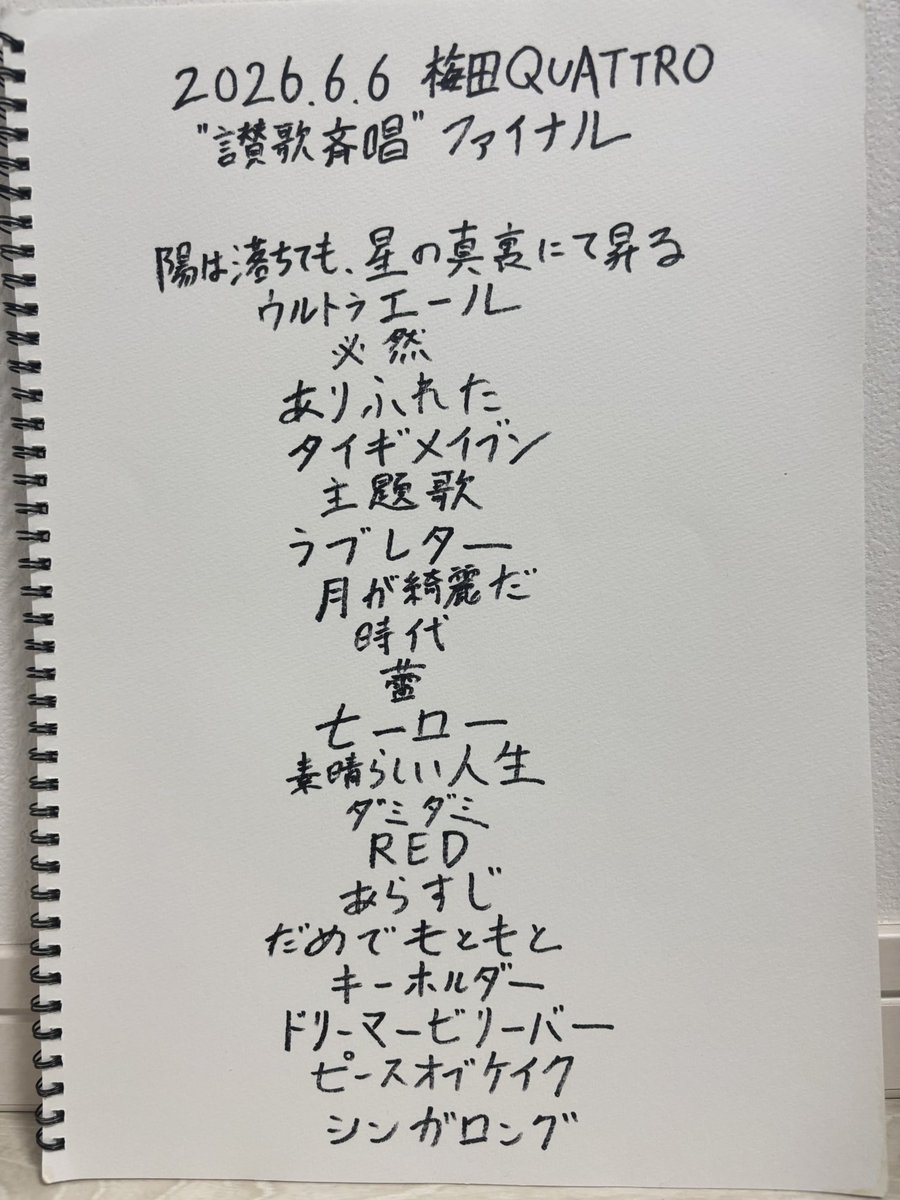 2026.6.6 梅田QUATTRO
"讃歌斉唱" ファイナル
陽は落ちても、星の真裏にて昇る
ウルトラエール
必然
ありふれた
タイギメイブン
主題歌
ラブレター
月が綺麗だ
時代
蕾
ヒーロー
素晴らしい人生
ダミダミ
RED
あらすじ
だめでもともと
キーホルダー
ドリーマービリーバー
ピースオブケイク
シンガロング